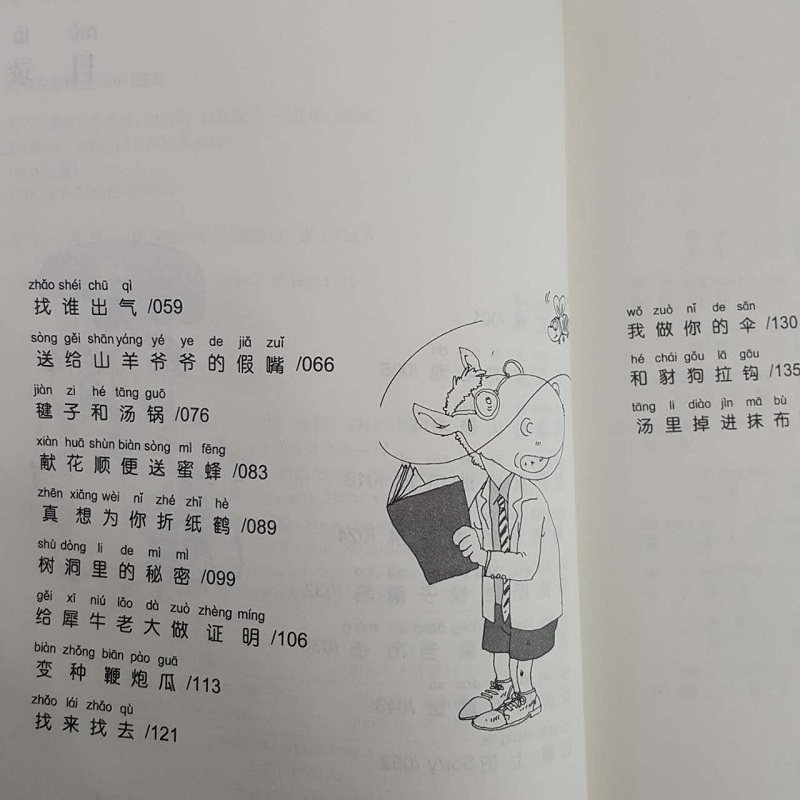 zhǎo shéi chū qì
找谁出气 /059
sòng gěi shān yáng yé ye de jiǎ zuǐ
送给山羊爷爷的假嘴 /066
jiàn zi hé tāng guō
毽子和汤锅 /076
xiàn huā shùn biàn sòng mì fēng
献花顺便送蜜蜂 /083
zhēn xiǎng wèi nǐ zhé zhǐ hè
真想为你折纸鹤 /089
shù dòng li de mì mì
树洞里的秘密 /099
gěi xī niú lǎo dà zuò zhèng míng
给犀牛老大做证明 /106
biàn zhǒng biān pào guā
变种鞭炮瓜 /113
zhǎo lái zhǎo qù
找来找去 /121
wǒ zuò nǐ de sǎn
我做你的伞 /130
hé chái gǒu lā gōu
和豺狗拉钩 /135
tāng li diào jìn mā bù
汤里掉进抹布